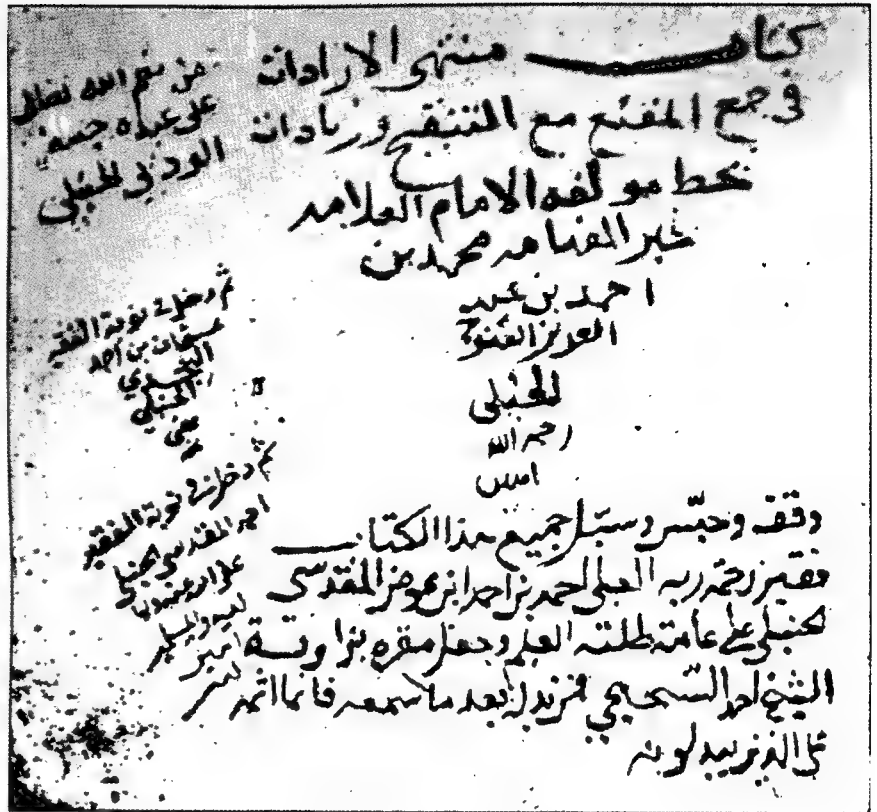 كتاب منتهى الارادات
في جمع المقنع مع التنقيح وزيادات
بخط مولفه الامام العلامه
محمد بن
احمد بن عبد
العزيز الفتوحي
الحنبلي
رحمه الله
امين
من نعم الله تعالى
على عبده
الحنبلي
ثم دخل في نوبة الفقير
عثمان بن احمد
النجدي
الحنبلي
عفي
ثم دخل في نوبة الفقير
احمد المقدسي الحنبلي
وقف وحبس وسبل جميع هذا الكتاب
فقير رحمة ربه العلي احمد بن احمد ابن عوض المقدسي
الحنبلي على عامة طلبة العلم وجعل مقره بزاوية
الشيخ احمد السحيمي فمن بدله بعد ما سمعه فانما اثمه
على الذين يبدلونه